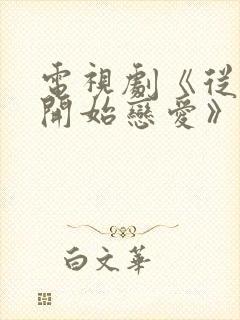 電視劇《從
開始戀愛》
白文華